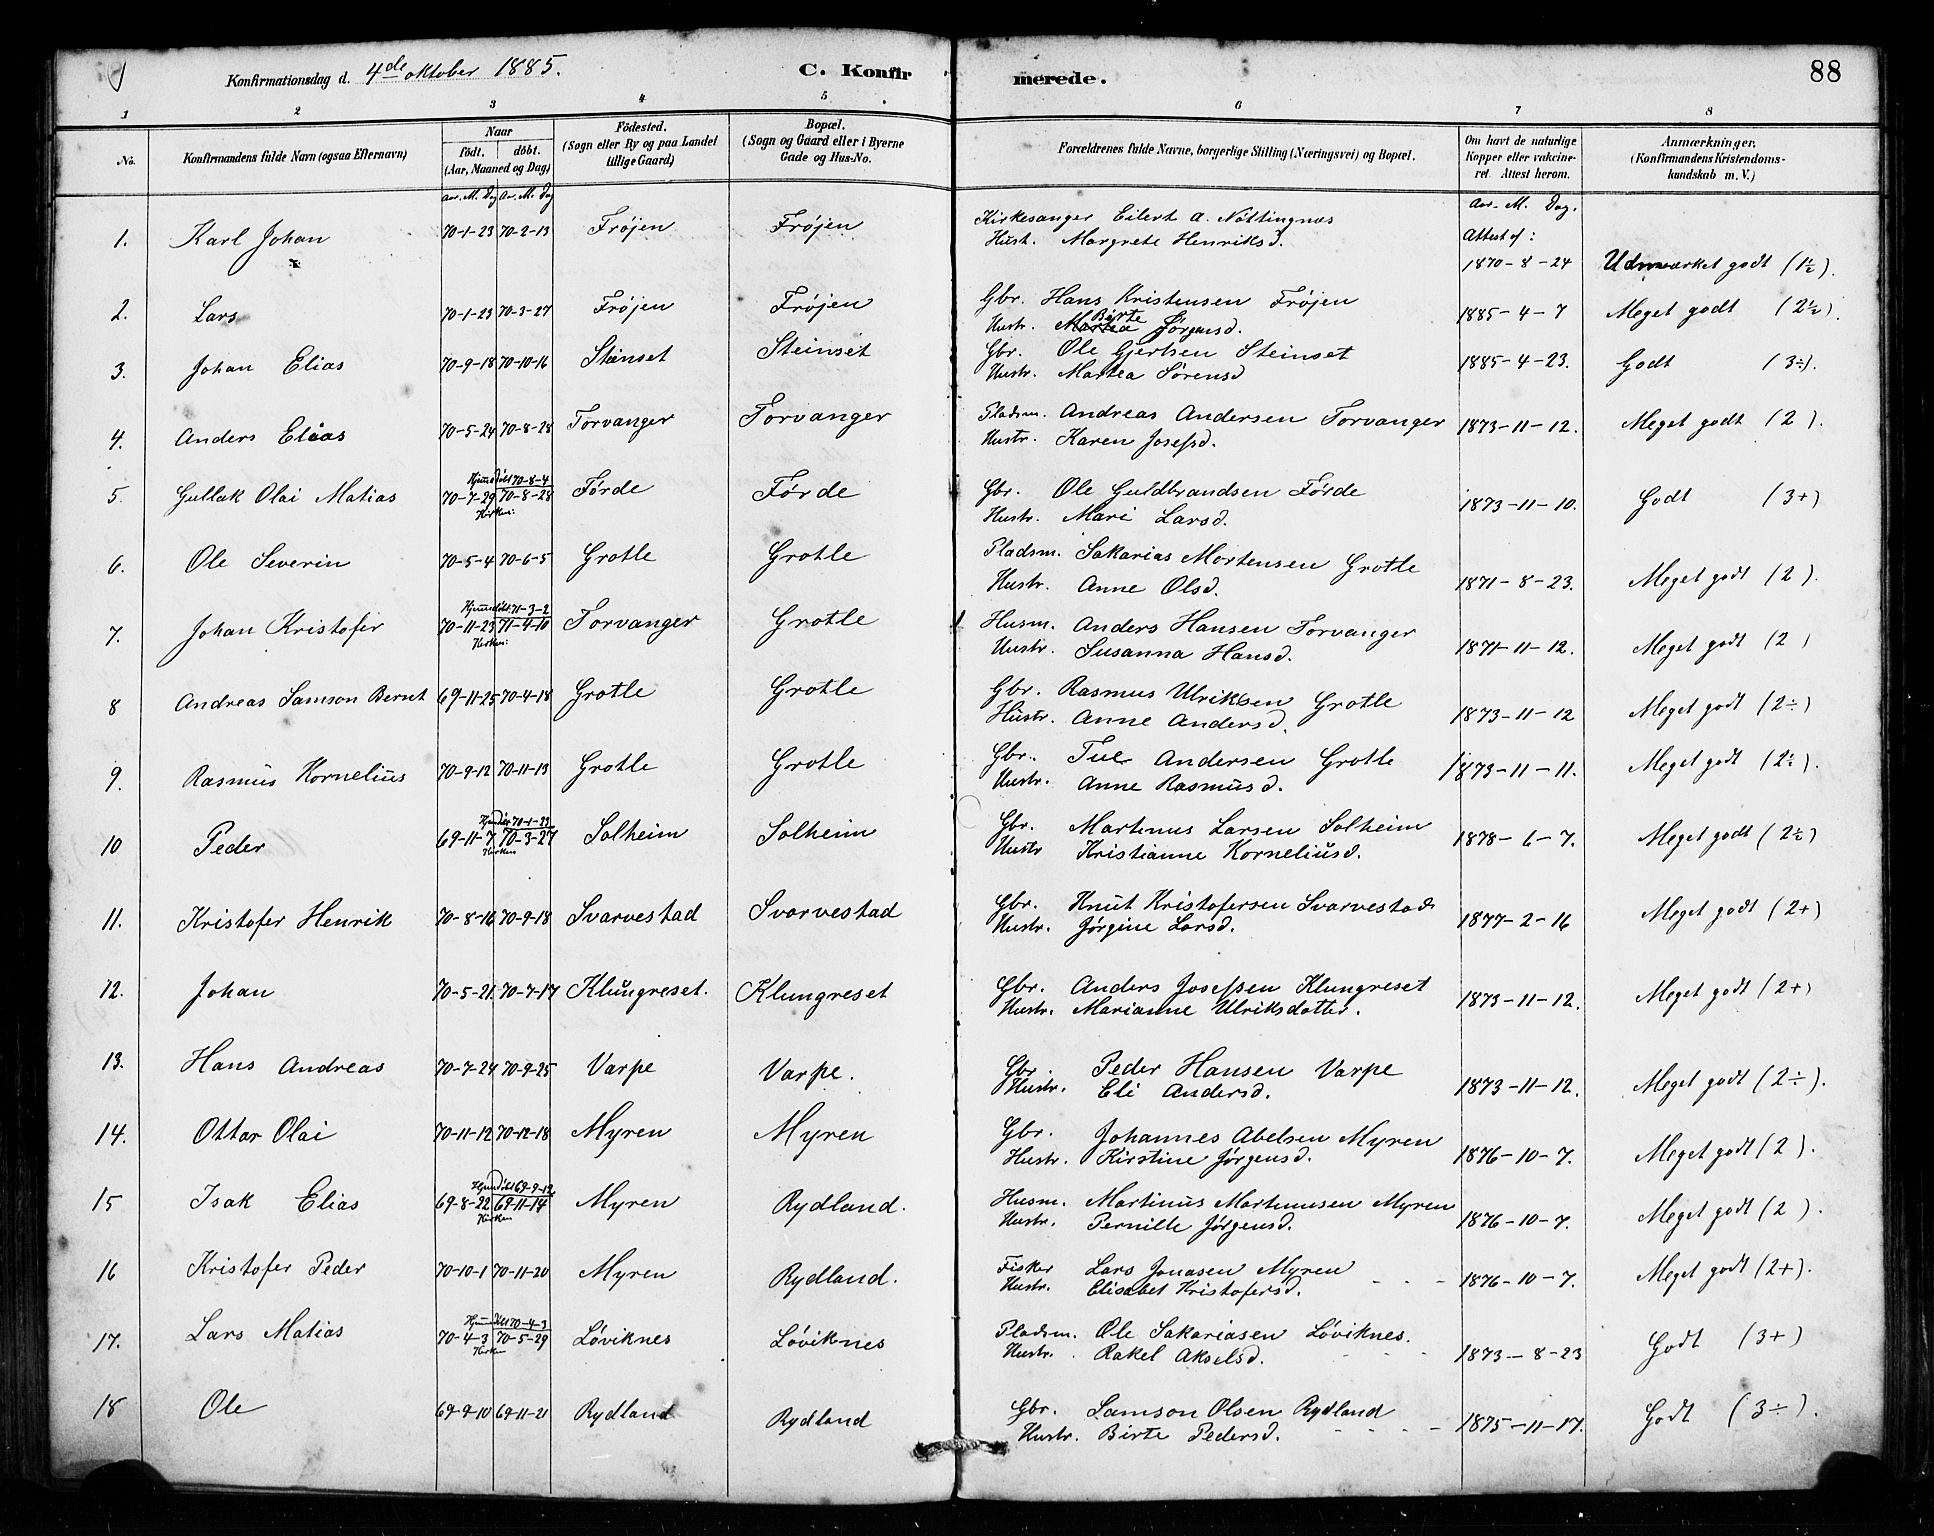 Konfirmationsdag d. 4de oktober 1885. C. Konfirmerede. 88
1 2 3 4 5 6 7 8
No. Konfirmandens fulde Navn (ogsaa Efternavn) Naar födt. döbt. (Aar, Maaned og Dag) Födested. (Sogn eller By og paa Landet tillige Gaard) Bopæl. (Sogn og Gaard eller i Byerne Gade og Hus-No. Forældrenes fulde Navne, borgerlige Stilling (Næringsvei) og Bopæl. Om havt de naturlige Kopper eller vakcineret. Attest herom. Anmærkninger. (Konfirmandens Kristendomskundskab m. V.)
Aar. M. Dag Aar. M. Dag Aar. M. Dag.
1. Karl Johan 70-1-23 70-2-13 Frøjen Frøjen Kirkesanger Eilert A. Nøttingnæs
Hust. Margrete Henriksd. Attest af: 1870-8-24 Udmærket godt (1½).
2. Lars 70-1-23 70-3-27 Frøjen Frøjen Gbr. Hans Kristensen Frøjen
Hustr. Martea Birte Jørgensd. 1885-4-7 Meget godt (2½)
3. Johan Elias 70-9-18 70-10-16 Steinset Steinset Gbr. Ole Gjertsen Steinset
Hustr. Martea Sørensd 1885-4-23. Godt (3÷).
4. Anders Elias 70-5-24 70-8-28 Torvanger Torvanger Pladsm. Andreas Andersen Torvanger
Hustr. Karen Josefsd. 1873-11-12. Meget godt (2).
5. Gullak Olai Matias 70-7-29 Hjemdöbt 70-8-4 Kirken: 70-8-28 Førde Førde Gbr. Ole Guldbrandsen Førde
Hustr. Mari Larsd. 1873-11-10. Godt (3+)
6. Ole Severin 70-5-4 70-6-5 Grotle Grotle Pladsm. Sakarias Mortensen Grotle
Hustr. Anne Olsd. 1871-8-23. Meget godt (2).
7. Johan Kristofer 70-11-23 Hjemdöbt 71-3-2 Kirken: 71-4-10 Torvanger Grotle Husm. Anders Hansen Torvanger
Hustr. Susanna Hansd. 1871-11-12. Meget godt (2)
8 Andreas Samson Bernt 69-11-25 70-4-18 Grotle Grotle Gbr. Rasmus Ulriksen Grotle
Hustr. Anne Andersd. 1873-11-12 Meget godt (2÷)
9. Rasmus Kornelius 70-9-12 70-11-13 Grotle Grotle Gbr. Andersen Grotle
Hustr. Anne Rasmusd. 1873-11-11. Meget godt (2½).
10 Peder 69-11-7 Hjemdöbt 70-1-23 Kirken 70-3-27 Solheim Solheim Gbr. Martinus Larsen Solheim
Hustr Kristianne Korneliusd. 1878-6-7. Meget godt (2½)
11. Kristofer Henrik 70-8-16 70-9-18 Svarvestad Svarvestad Gbr. Knut Kristofersen Svarvestad
Hustr. Jørgine Larsd. 1877-2-16 Meget godt (2+)
12. Johan 70-5-21 70-7-17 Klungreset. Klungreset Gbr. Anders Josefsen Klungreset
Hustr. Marianne Ulriksdotter. 1873-11-12. Meget godt (2+)
13. Hans Andreas 70-7-24 70-9-25 Varpe Varpe. Gbr. Peder Hansen Varpe
Hustr. Eli Andersd. 1873-11-12. Meget godt (2÷).
14. Ottar Olai 70-11-12 70-12-18 Myren Myren Gbr. Johannes Abelsen Myren
Hustr. Kirstine Jørgensd. 1876-10-7. Meget godt (2).
15 Isak Elias 69-8-22 Hjemdöbt 69-9-12 Kirken 69-11-14 Myren Rydland. Husm. Martinus Martinusen Myren
Hustr. Pernille Jørgensd. 1876-10-7. Meget godt (2).
16 Kristofer Peder 70-10-1 70-11-20 Myren Rydland. Fisker Lars Jonasen Myren
Hustr. Elisabet Kristofersd. 1876-10-7. Meget godt (2+).
17. Lars Matias 70-4-3 Hjemdöbt 70-4-3 Kirken 70-5-29 Løviknes Løviknes Pladsm. Ole Sakariasen Løviknes.
Hustr. Rakel Akselsd. 1873-8-23 Godt (3+)
18 Ole 69-9-10 69-11-21 Rydland Rydland Gbr. Samson Olsen Rydland
Hustr. Birte Pedersd. 1875-11-17. Godt (3÷).